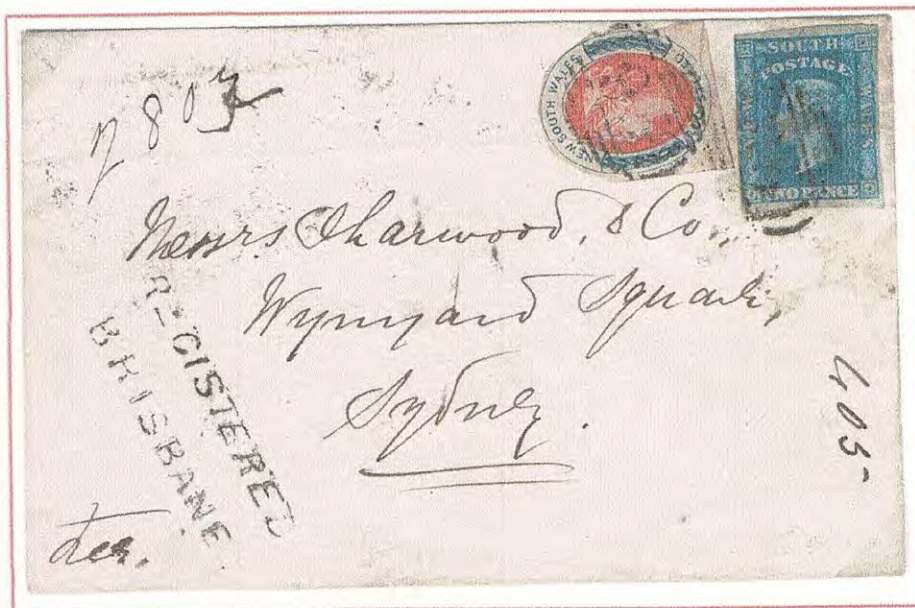 2803
NEW SOUTH WALES
REGISTERED
SOUTH
POSTAGE
NEW
WALES
TWO PENCE
Messrs Tharwood, & Co.,
Wynyard Square,
Sydney.
REGISTERED
BRISBANE
405